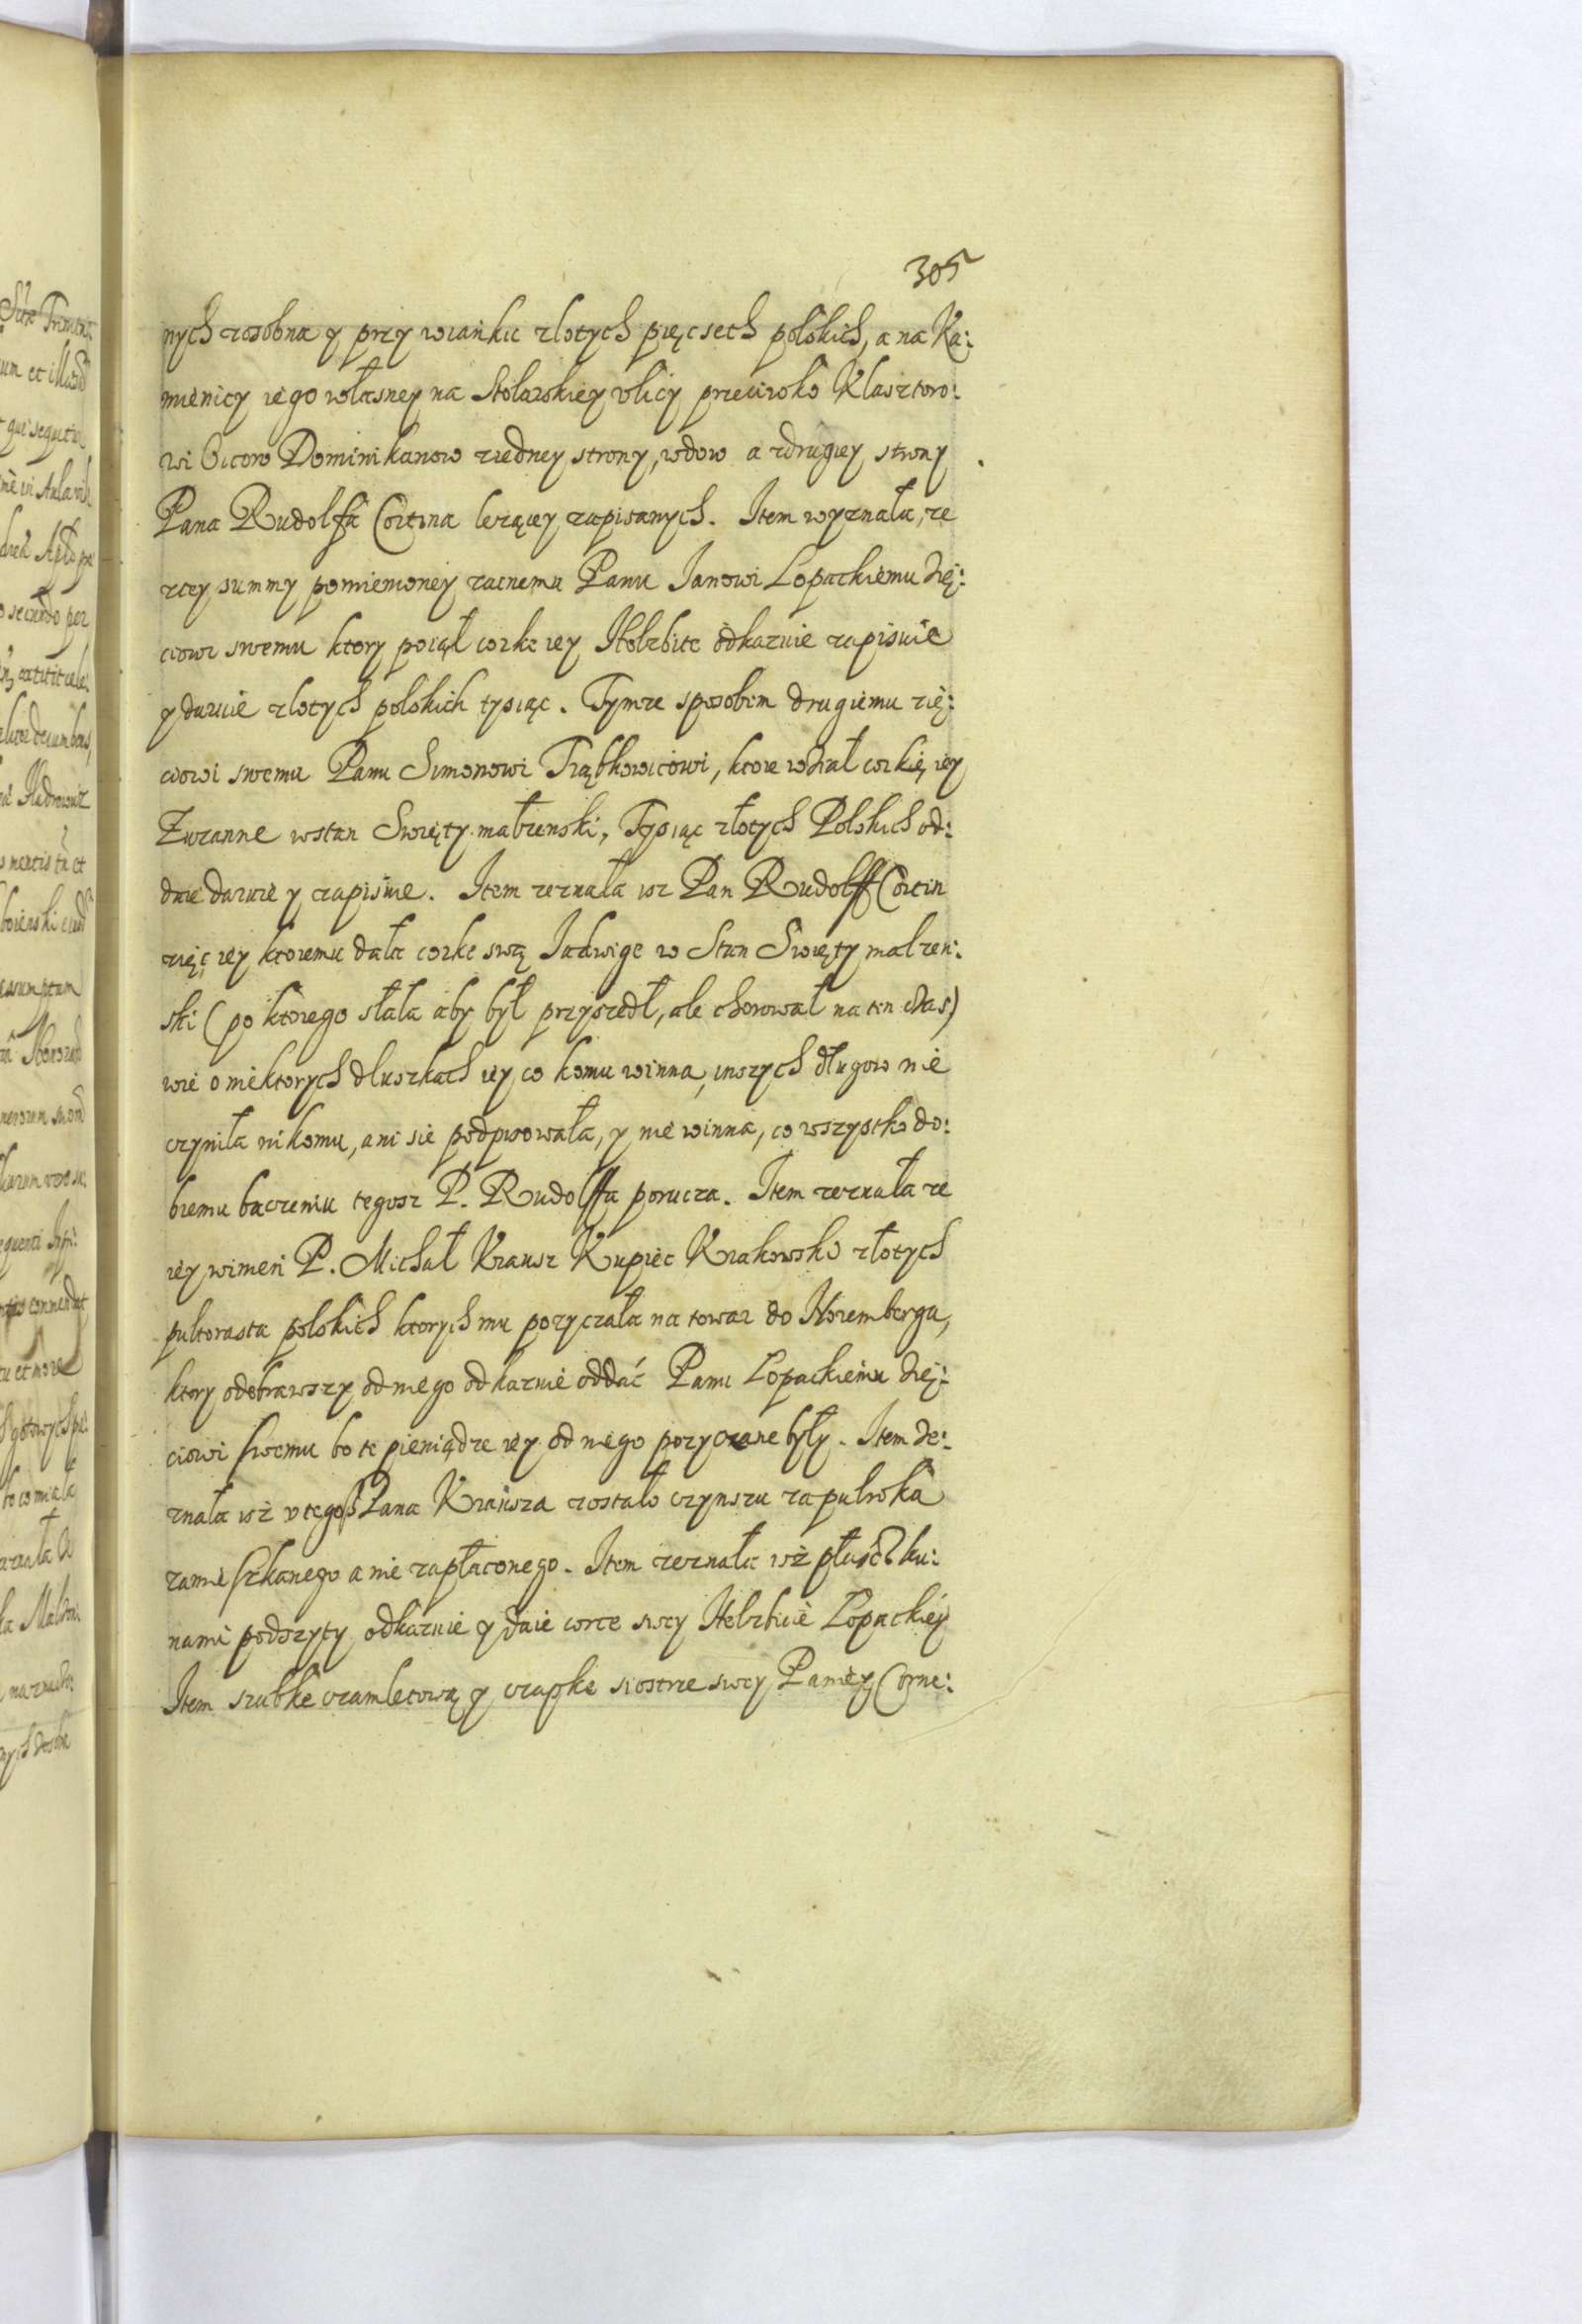 305
nych zosobna y przy wianku zlotych pięcset polskich, a na Ka:
mienicy iego własney na Stolarskiey vlicy przeciwko Klasztoro:
wi Oicow Dominikanow ziedney strony, wdow a zdrugiey strony
Pana Rudolffa Cortina lezącey zapisanych. Item wyznała, ze
ztey summy pomienioney zacnemu Panu Janowi Lopackiemu zię:
ciowi swemu ktory poiął corke iey odkazuie zapisuie
y daruie zlotych polskich tysiąc. Tymze sposobem drugiemu zię:
ciowi swemu Panu Simonowi Trąbkowicowi, ktore wział corkię iey
Zuzanne wstan Swięty małzenski, Tysiąc złotych Polskich od:
daie daruie y zapisuie. Item zeznała isz Pan Rudolff Cortin
zięc iey ktoremu dała corke swą Jadwige w Stan Swięty malzen:
ski (po ktorego słała aby był przyszedł, ale chorował na ten czas)
wie o niektorych dluszkach iey co komu winna, inszych długow nie
czyniła nikomu, ani sie podpisowała, y nie winna, co wszystko do:
bremu baczeniu tegosz P. Rudolffa porucza. Item zeznała ze
iey winien P. Michał Krausz Kupiec Krakowski złotych
pultorasta polskich ktorych mu pozyczała na towar do Noremberga,
ktory odebrawszy od niego odkazuie oddać Panu Lopackiemu zię:
ciowi swemu bo te pieniądze iey od niego pozyczane były. Item ze:
znała isż v tegoß Pana Krausza zostało czynszu za pulroka
zamieszkanego a nie zapłaconego. Item zeznała isż płaszcz ku:
nami podszyty odkazuie y daie corce swey Lopackiey
Item szubke czamletową y czapke siostrze swey Paniey Corne: